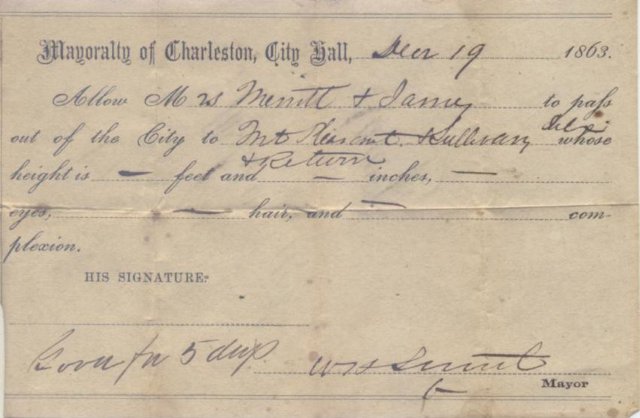 Mayoralty of Charleston, City Hall, Decr 19 1863.
Allow Mrs Merritt & to pass
out of the City to Mt Pleasant & Sullivans Isl whose
& Return
height is — feet and — inches, —
eyes, — hair, and — com-
plexion.
HIS SIGNATURE:
Good for 5 days
Mayor